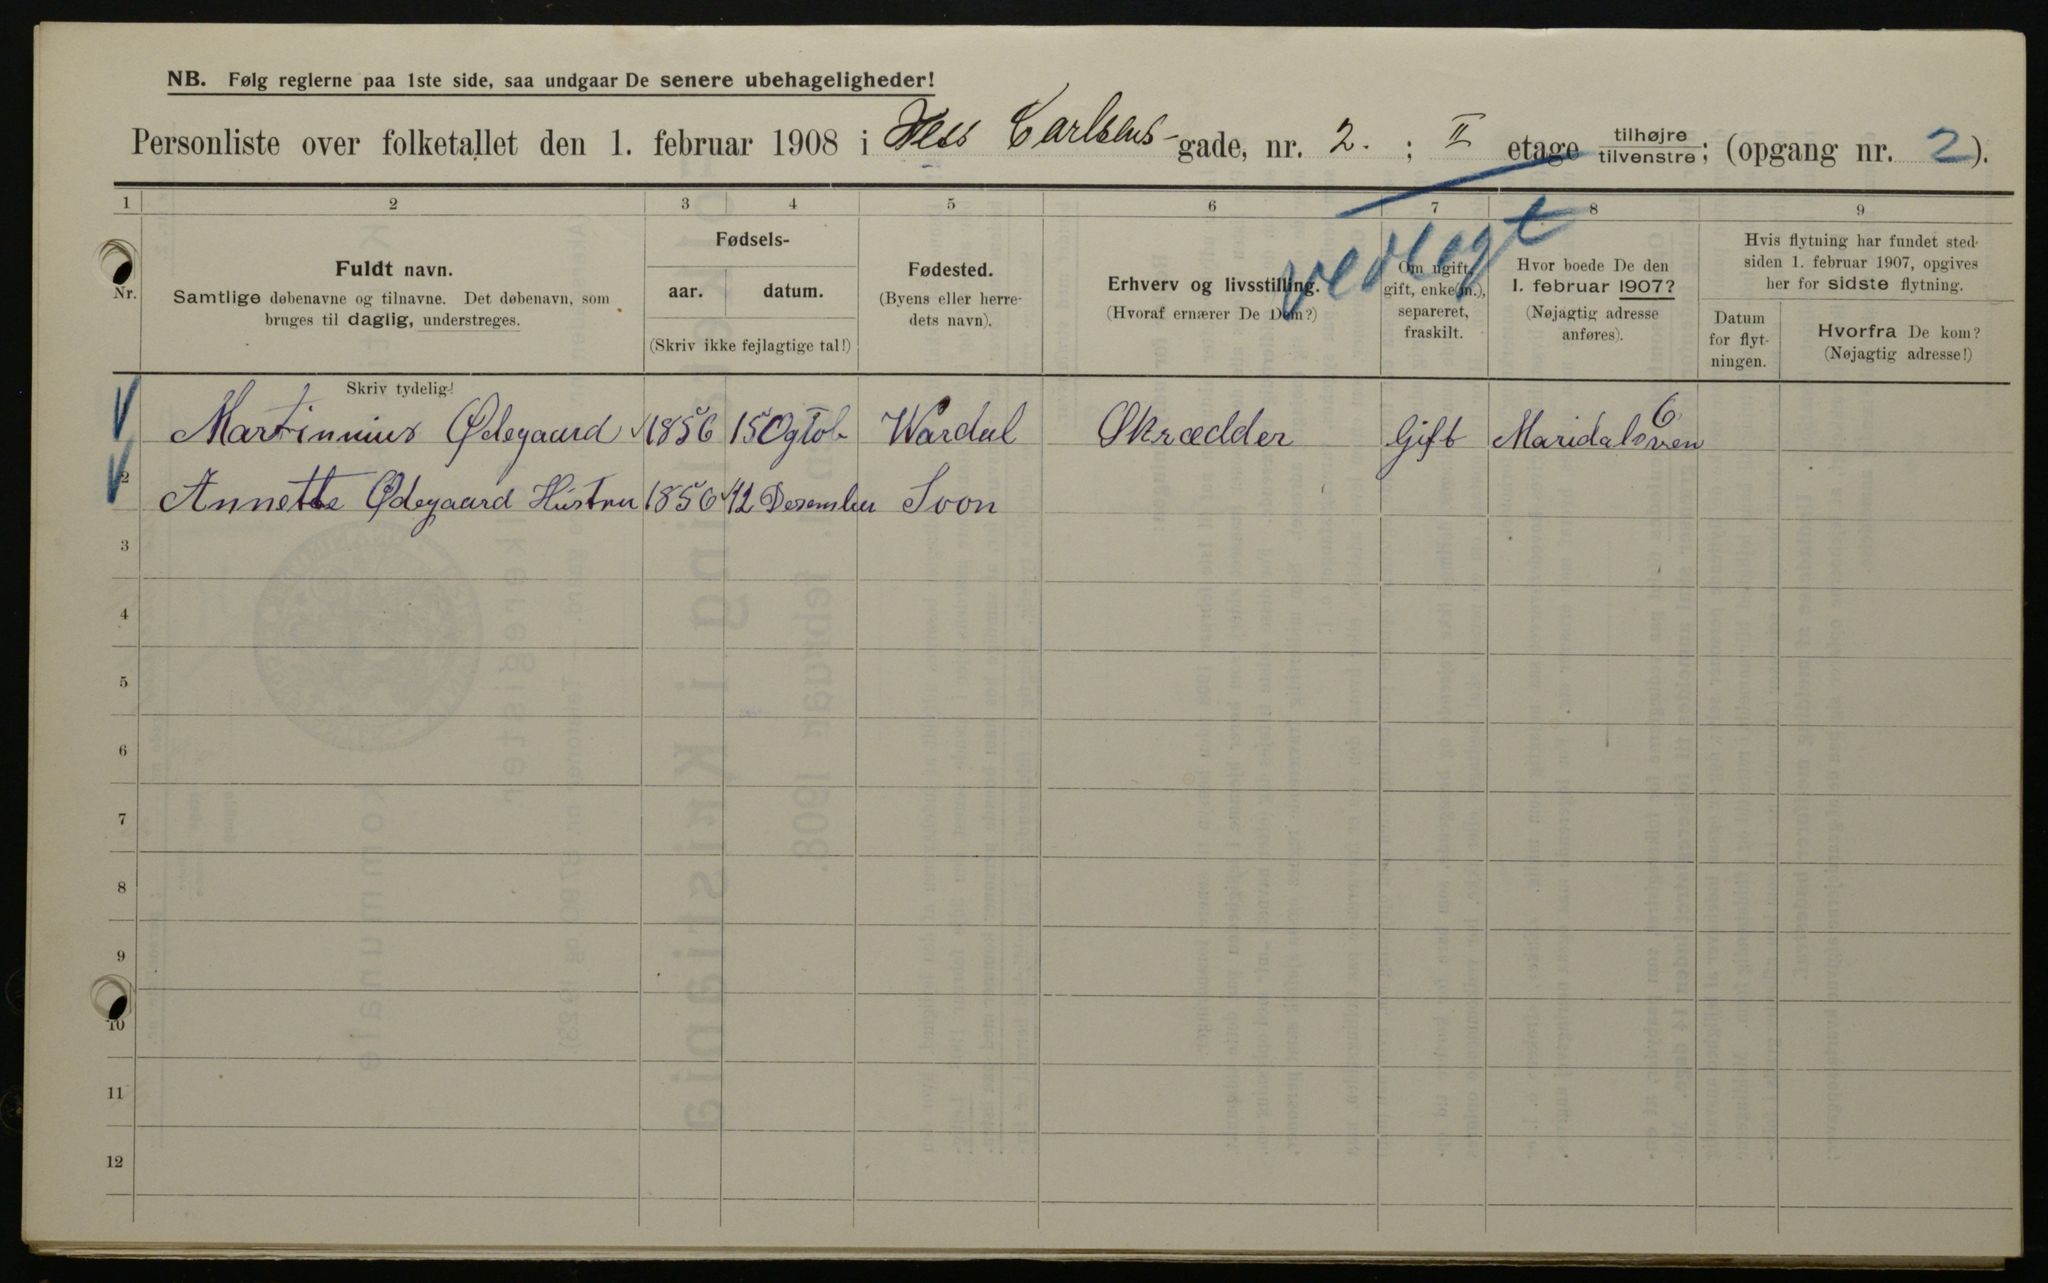 NB. Følg reglerne paa 1ste side, saa undgaar De senere ubehageligheder!
Personliste over folketallet den 1. februar 1908 i Jess Carlsens-gade, nr. 2. ; II etage tilhøjre tilvenstre; (opgang nr. 2).
1 2 3 4 5 6 7 8 9
Nr.
Fuldt navn.
Samtlige døbenavne og tilnavne. Det døbenavn, som
bruges til daglig, understreges.
Fødsels-
aar. datum.
(Skriv ikke fejlagtige tal!)
Fødested.
(Byens eller herre-
dets navn).
Erhverv og livsstilling.
(Hvoraf ernærer De Dem?)
vedlegt
Om ugift,
gift, enke(m.),
separeret,
fraskilt.
Hvor boede De den
1. februar 1907?
(Nøjagtig adresse
anføres).
Hvis flytning har fundet sted
siden 1. februar 1907, opgives
her for sidste flytning.
Datum
for flyt-
ningen.
Hvorfra De kom?
(Nøjagtig adresse!)
Skriv tydelig!
Martinnius Ødegaard 1856 15 Ogtob Wardal Skrædder Gift Maridalsven 6
2 Annette Ødegaard Hustru 1856 12 Desember Soon
3
4
5
6
7
8
9
10
11
12